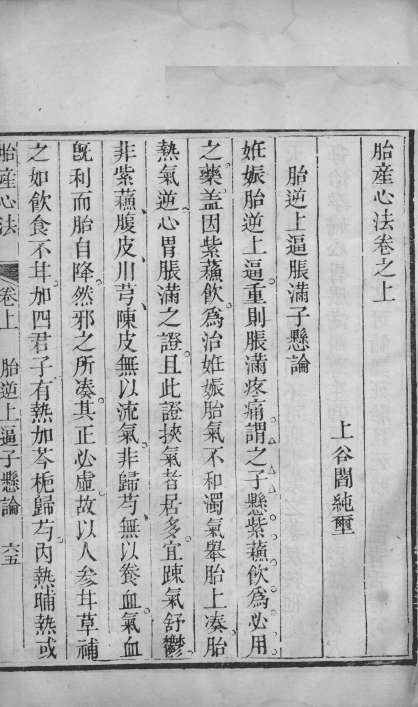 胎產心法卷之上
上谷閻純璽
胎逆上逼脹滿子懸論
妊娠胎逆上逼重則脹滿疼痛謂之子懸紫蘓飲為必用
之藥盖因紫蘓飲為治妊娠胎氣不和濁氣舉胎上凑胎
熱氣逆心胃脹滿之證且此證挾氣者居多宜踈氣舒鬱
非紫蘓腹皮川芎陳皮無以流氣非歸芍無以飬血氣血
旣利而胎自降然邪之所凑其正必虛故以人參甘草補
之如飲食不甘加四君子有熱加芩梔歸芍內熱晡熱或
胎產心法 卷上 胎逆上逼子懸論 六五